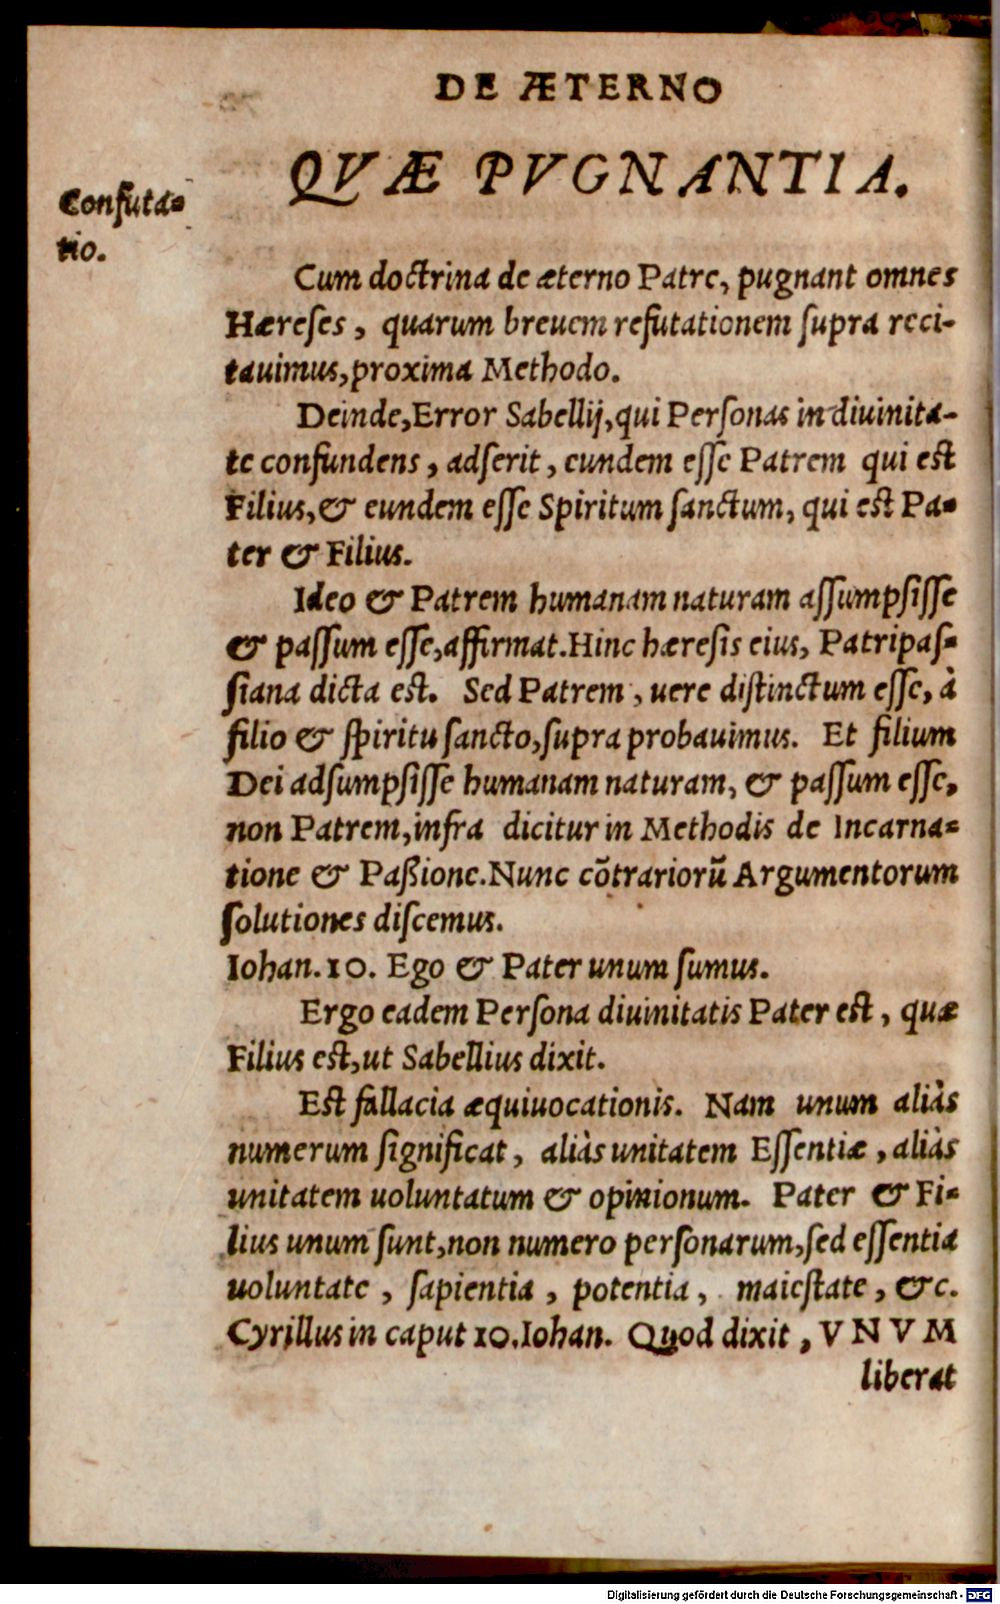 DE ÆTERNO
QVÆ PVGNANTIA.
Confuta-
tio.
Cum doctrina de æterno Patre, pugnant omnes
Hæreſes, quarum breuem refutationem ſupra reci-
tauimus, proxima Methodo.
Deinde, Error Sabellij, qui Perſonas in diuinita-
te confundens, adſerit, eundem eſſe Patrem qui est
Filius, & eundem eſſe Spiritum ſanctum, qui est Pa-
ter & Filius.
Ideo & Patrem humanam naturam aſſumpſiſſe
& paſſum eſſe, affirmat. Hinc hæreſis eius, Patripaſ-
ſiana dicta est. Sed Patrem, uere diſtinctum eſſe, à
filio & ſpiritu ſancto, ſupra probauimus. Et filium
Dei adſumpſiſſe humanam naturam, & paſſum eſſe,
non Patrem, infra dicitur in Methodis de Incarna-
tione & Paßione. Nunc cõtrariorũ Argumentorum
ſolutiones diſcemus.
Iohan. 10. Ego & Pater unum ſumus.
Ergo eadem Perſona diuinitatis Pater est, quæ
Filius est, ut Sabellius dixit.
Est fallacia æquiuocationis. Nam unum aliàs
numerum ſignificat, aliàs unitatem Eſſentiæ, aliàs
unitatem uoluntatum & opinionum. Pater & Fi-
lius unum ſunt, non numero perſonarum, ſed eſſentia
uoluntate, ſapientia, potentia, maieſtate, &c.
Cyrillus in caput 10. Iohan. Quod dixit, VNVM
liberat
Digitalisierung gefördert durch die Deutsche Forschungsgemeinschaft - DFG